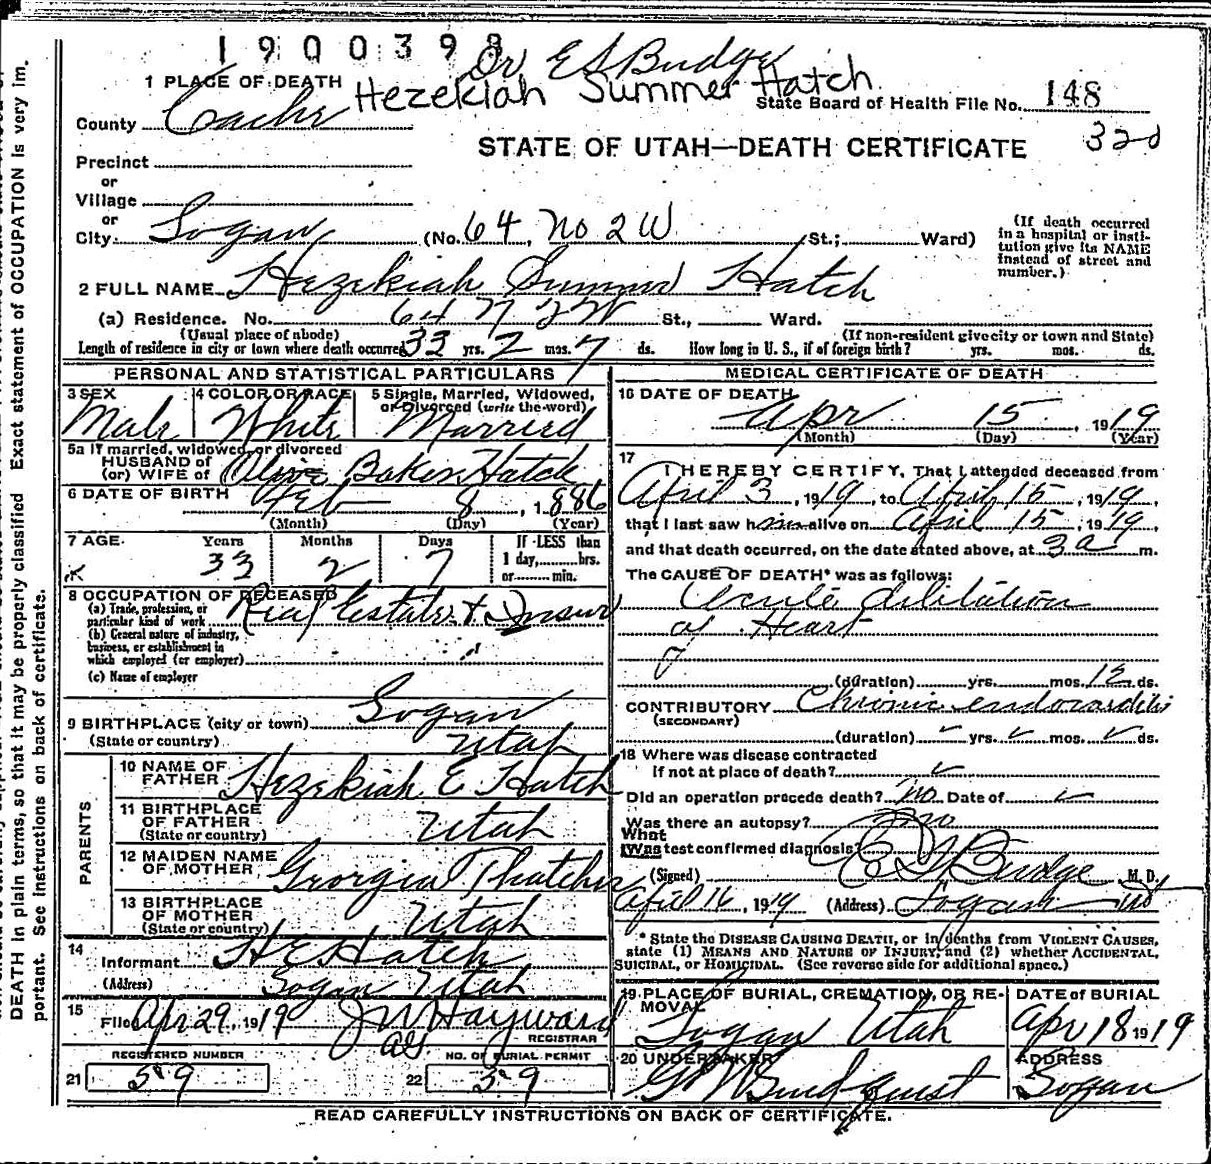 1900398
Dr E S Budge
1 PLACE OF DEATH
Hezekiah Summer Hatch
State Board of Health File No. 148
County Cache
STATE OF UTAH—DEATH CERTIFICATE
320
Precinct
or
Village
or
City Logan (No. 64, No 2 W St.; Ward)
(If death occurred in a hospital or insti-
tution give its NAME
instead of street and
number.)
2 FULL NAME Hezekiah Summer Hatch
(a) Residence. No. 64 N 2 W St., Ward.
(Usual place of abode) (If non-resident give city or town and State)
Length of residence in city or town where death occurred 33 yrs. 2 mos. 7 ds. How long in U. S., if of foreign birth? yrs. mos. ds.
PERSONAL AND STATISTICAL PARTICULARS
3 SEX 4 COLOR OR RACE 5 Single, Married, Widowed,
or Divorced (write the word)
Male White Married
5a If married, widowed, or divorced
HUSBAND of
(or) WIFE of Olive Baker Hatch
6 DATE OF BIRTH Feb 8, 1886
(Month) (Day) (Year)
7 AGE Years Months Days If LESS than
1 day, hrs.
or min.
33 2 7
8 OCCUPATION OF DECEASED
(a) Trade, profession, or
particular kind of work Real Estate & Insur
(b) General nature of industry,
business, or establishment in
which employed (or employer)
(c) Name of employer
9 BIRTHPLACE (city or town) Logan
(State or country) Utah
PARENTS
10 NAME OF
FATHER Hezekiah E Hatch
11 BIRTHPLACE
OF FATHER Utah
(State or country)
12 MAIDEN NAME
OF MOTHER Georgia Thatcher
13 BIRTHPLACE
OF MOTHER Utah
(State or country)
14 Informant H E Hatch
(Address) Logan Utah
15 Filed Apr 29, 1919 J W Hayward
REGISTRAR
REGISTERED NUMBER NO. OF BURIAL PERMIT
21 59 22 39
MEDICAL CERTIFICATE OF DEATH
16 DATE OF DEATH
Apr 15, 1919
(Month) (Day) (Year)
17 I HEREBY CERTIFY, That I attended deceased from
April 3, 1919, to April 15, 1919,
that I last saw him alive on April 15, 1919,
and that death occurred, on the date stated above, at 3 a m.
The CAUSE OF DEATH* was as follows:
Acute dilitation
of Heart
(duration) yrs. mos. 12 ds.
CONTRIBUTORY Chronic endocarditis
(SECONDARY)
(duration) yrs. mos. ds.
18 Where was disease contracted
if not at place of death?
Did an operation precede death? no Date of
Was there an autopsy? no
What
Was test confirmed diagnosis?
(Signed) E S Budge M. D.
April 16, 1919 (Address) Logan Ut
* State the DISEASE CAUSING DEATH, or in deaths from VIOLENT CAUSES,
state (1) MEANS AND NATURE OF INJURY, and (2) whether ACCIDENTAL,
SUICIDAL, or HOMICIDAL. (See reverse side for additional space.)
19 PLACE OF BURIAL, CREMATION, OR RE-
MOVAL DATE of BURIAL
Logan Utah Apr 18 1919
20 UNDERTAKER ADDRESS
Logan
READ CAREFULLY INSTRUCTIONS ON BACK OF CERTIFICATE.
DEATH in plain terms, so that it may be properly classified. Exact statement of OCCUPATION is very im-
portant. See instructions on back of certificate.